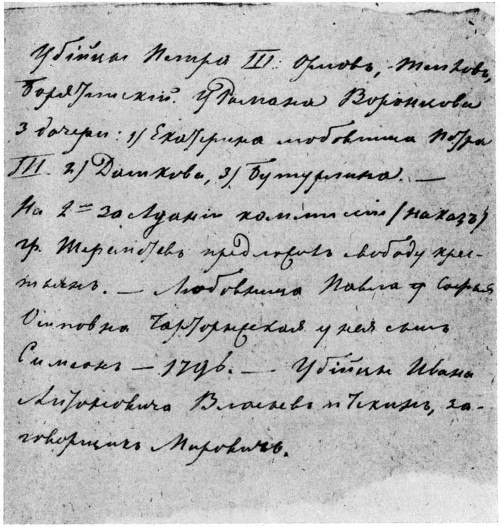 Убійцы Петра III: Орловъ, Тепловъ,
Борятинскій. У Романа Воронцова
3 дочери: 1) Екатерина любовница Петра
III. 2) Дашкова, 3) Бутурлина. —
На 2мъ заседаніи комиссіи (наказъ)
гр. Шереметевъ предложилъ свободу крес-
тьянъ. — Любовница Павла Софья
Осиповна Чарторыжская у нея сынъ
Симеонъ — 1796. — Убійцы Ивана
Антоновича Власьевъ и Чекинъ, за-
говорщикъ Мировичъ.